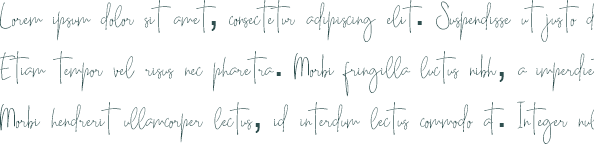 Lorem ipsum dolor sit amet, consectetur adipiscing elit. Suspendisse ut justo d
Etiam tempor vel risus nec pharetra. Morbi fringilla luctus nibh, a imperdie
Morbi hendrerit ullamcorper lectus, id interdum lectus commodo at. Integer nul